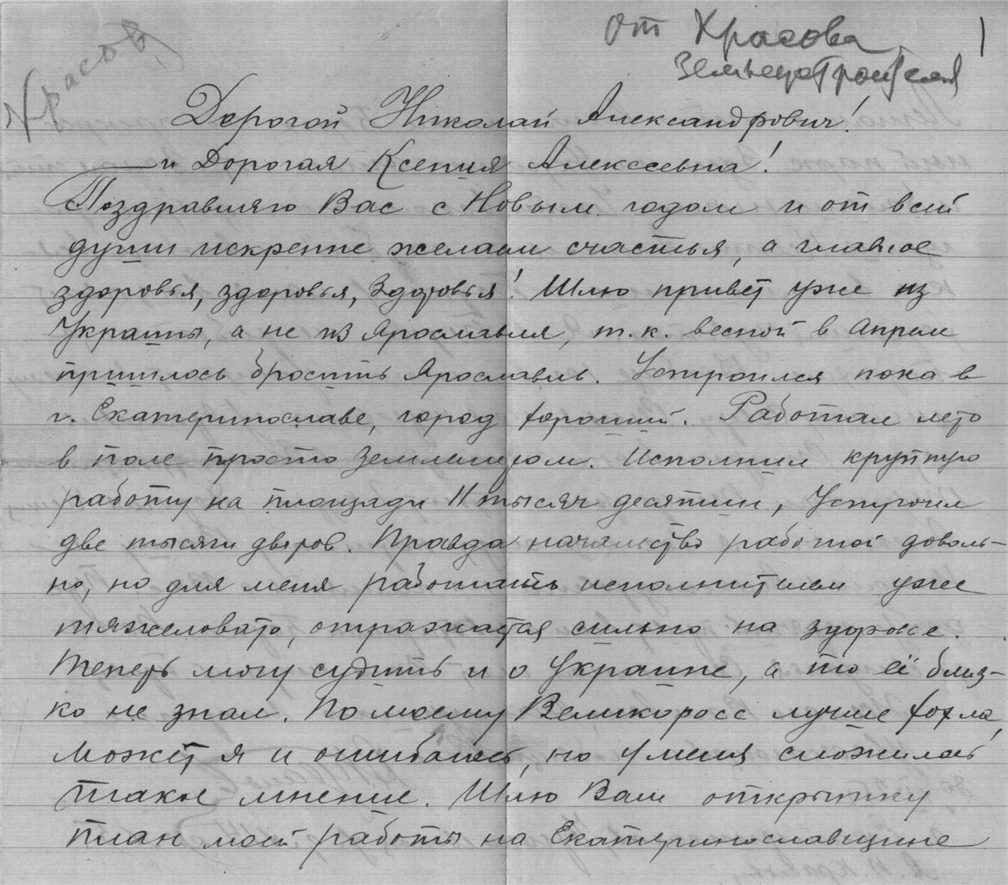 От Красова
Землеустроителя
1
Красов
Дорогой Николай Александрович!
и Дорогая Ксения Алексеевна!
Поздравляю Вас с Новым годом и от всей
души искренне желаем счастья, а главное
здоровья, здоровья, здоровья! Шлю привет уже из
Украины, а не из Ярославля, т.к. весной в апреле
пришлось бросить Ярославль. Устроился пока в
г. Екатеринославе, город хороший. Работал лето
в поле просто землемером. Исполнил крупную
работу на площади 11 тысяч десятин, Устроил
две тысячи дворов. Правда начальство работой доволь-
но, но для меня работать исполнителем уже
тяжеловато, отражается сильно на здоровье.
Теперь могу судить и о Украине, а то её близ-
ко не знал. По моему Великоросс лучше хохла,
может я и ошибаюсь, но у меня сложилось
такое мнение. Шлю Вам открытку
план моей работы на Екатеринославщине